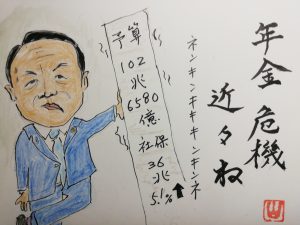 年金危機
近々ね
ネンキンキキキンキンネ
予算
102
兆
6580
億
社保
36
兆
5.1%↑